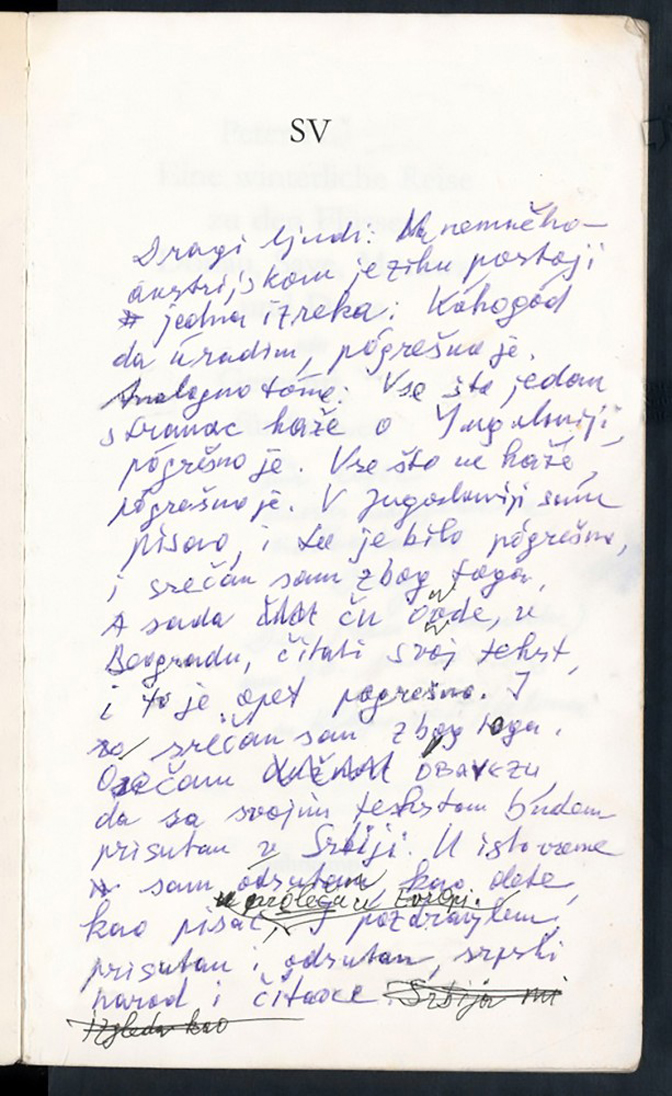 SV
Dragi ljudi: U nemačko-
austrijskom jeziku postoji
jedna izreka: Kakogod
da uradim, pogrešno je.
Analogno tome: Vse što jedan
stranac kaže o Jugoslaviji,
pogrešno je. Vse što ne kaže,
pogrešno je. V Jugoslaviji sam
pisao, i to je bilo pogrešno,
i srečan sam zbog toga.
A sada ču ovde, u
Beogradu, čitati svoj tekst,
i to je opet pogrešno. I
srečan sam zbog toga.
Osečam OBAVEZU,
da sa svojim tekstom budem
prisutan v Srbiji. U isto vreme
sam odsutan kao dete,
u proleću u Evropi.
kao pisac, I pozdravljam,
prisutan i odsutan, srpski
narod i čitaoce. Srbija mi
izgleda kao